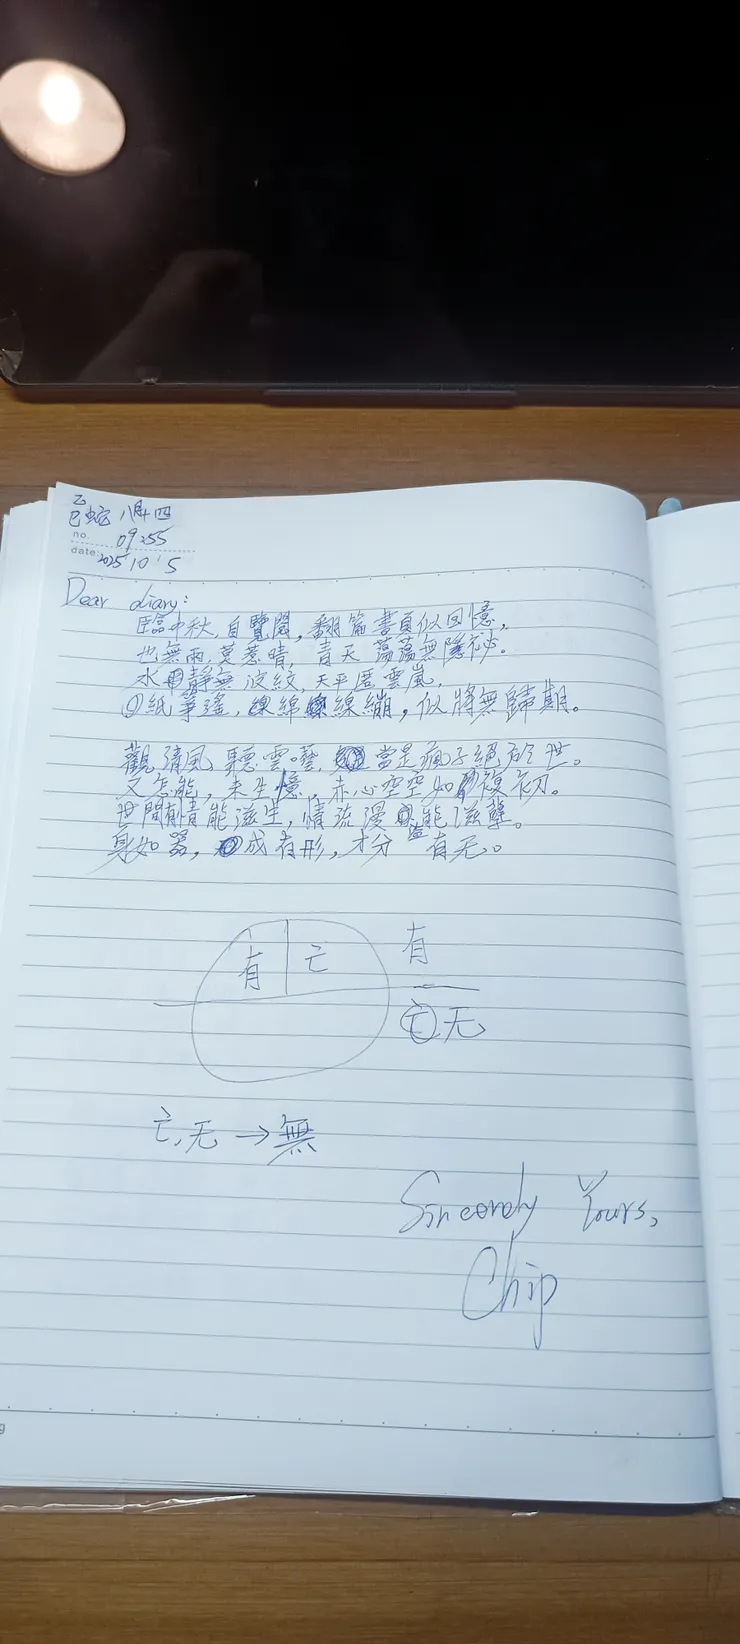 乙
巳蛇 八月十四
no. 09:55
date: 2025 10 5
Dear diary:
臨中秋,自覽閱,翻篇書頁似回憶,
也無雨,莫惹晴,青天蕩蕩無隱祕。
水靜無波紋,天平匿雲嵐,
紙箏遙,線綿線繃,似將無歸期。
觀清風聽雲囈,當是瘋子絕於世。
又怎能,未生憶,赤心空空如複初。
世間情能滋生,情流漫能滋孽。
身如器,成有形,才分有无。
有 亡 有
亡 无
亡,无→無
Sincerely Yours,
Chip
9